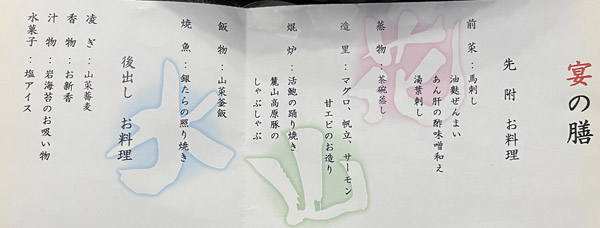 宴の膳
先附 お料理
前菜：馬刺し
油麩ぜんまい
あん肝の酢味噌和え
湯葉刺し
蒸物：茶碗蒸し
造里：マグロ、帆立、サーモン
甘エビのお造り
焜炉：活鮑の踊り焼き
麓山高原豚の
しゃぶしゃぶ
飯物：山菜釜飯
焼魚：銀たらの照り焼き
後出し お料理
凌ぎ：山菜蕎麦
香物：お新香
汁物：岩海苔のお吸い物
水菓子：塩アイス
花
山
水